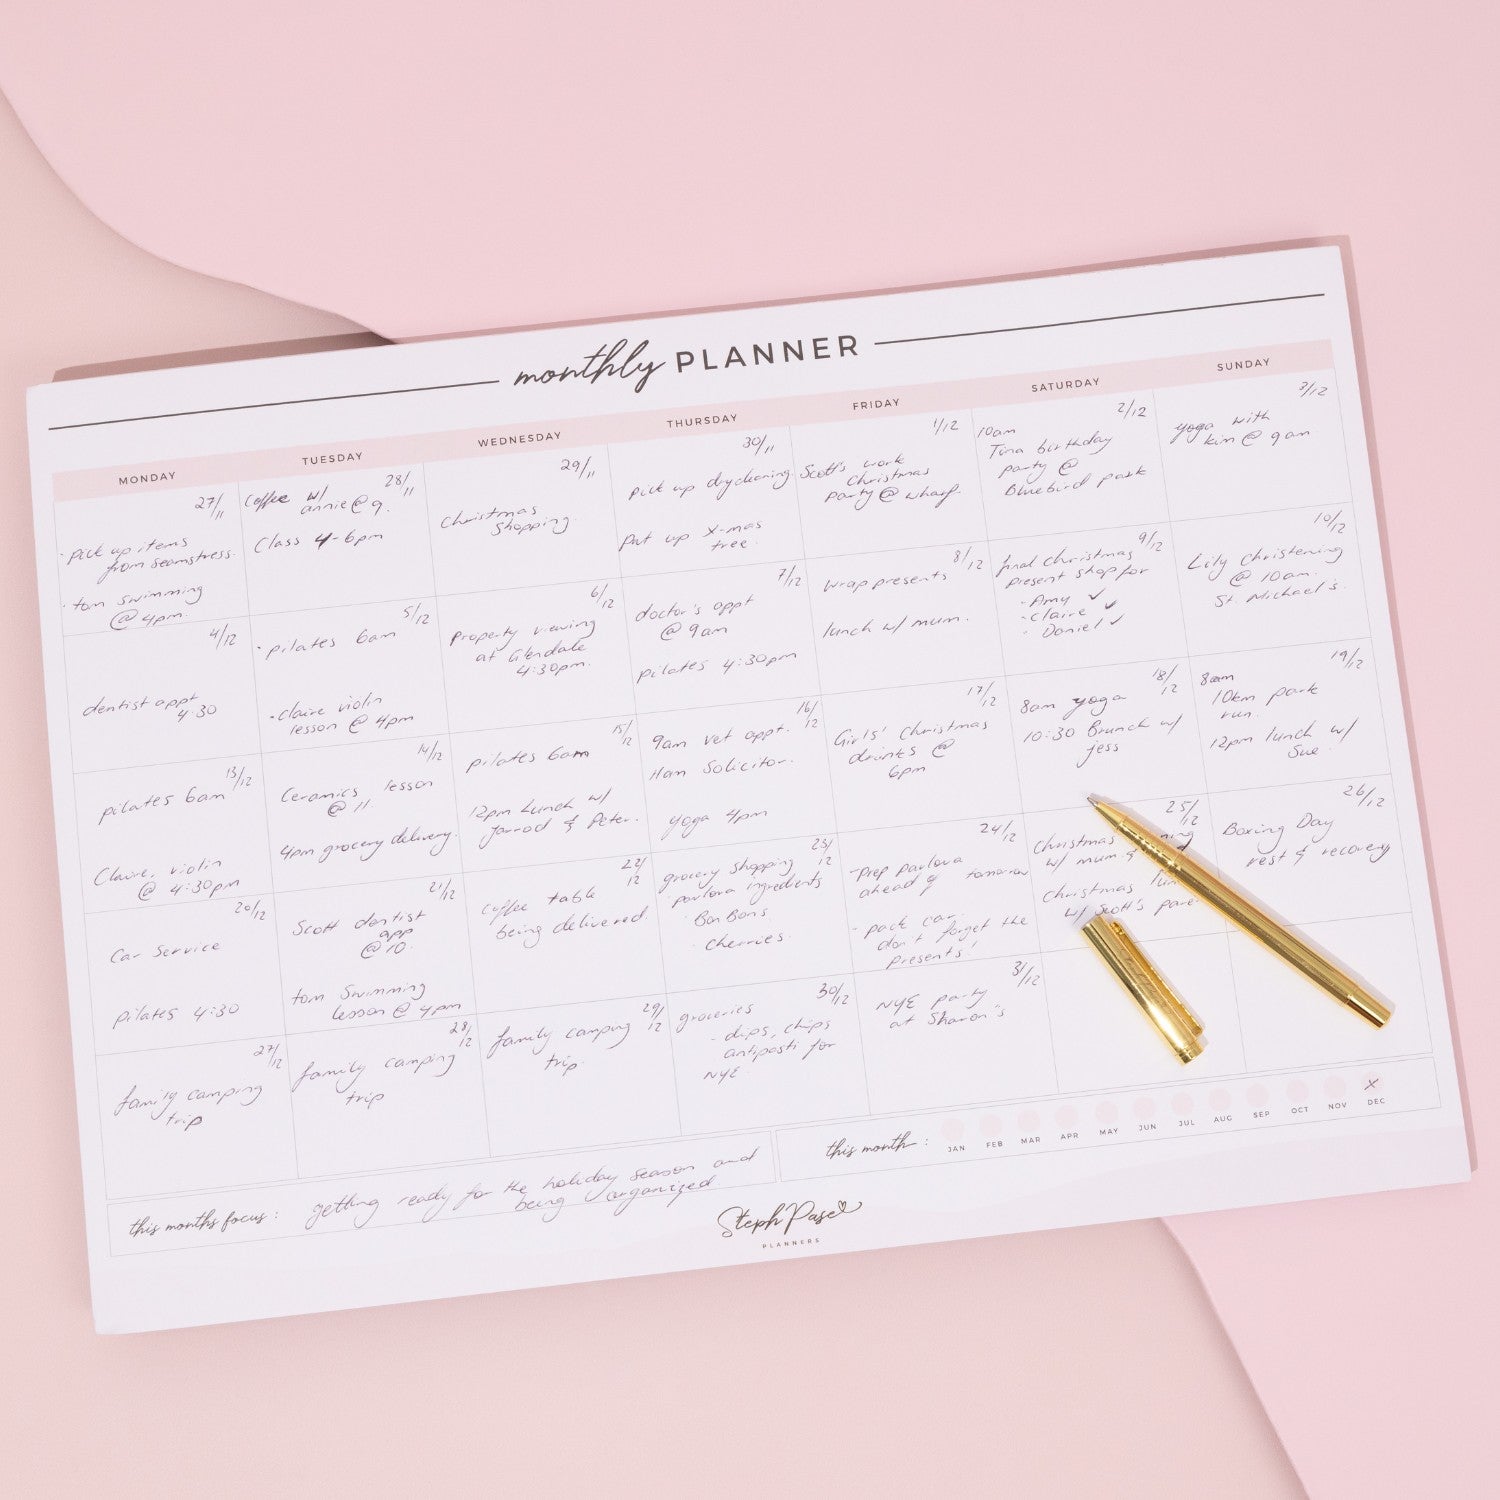 monthly PLANNER
MONDAY
TUESDAY
WEDNESDAY
THURSDAY
FRIDAY
SATURDAY
SUNDAY
27/11
· pick up items
from seamstress.
· tom swimming
@ 4pm.
28/11
Coffee w/
annie @ 9.
Class 4-6pm
29/11
Christmas
Shopping.
30/11
pick up drycleaning.
put up x-mas
tree.
1/12
Scott's work
Christmas
party @ wharf.
2/12
10am
Tina birthday
party @
Bluebird park
3/12
yoga with
kim @ 9am
4/12
dentist appt
4:30
5/12
· pilates 6am
· claire violin
lesson @ 4pm
6/12
Property viewing
at Glendale
4:30pm.
7/12
doctor's appt
@ 9am
pilates 4:30pm
8/12
wrap presents
lunch w/ mum.
9/12
final christmas
present shop for
· Amy ✓
· Claire ✓
· Daniel ✓
10/12
Lily Christening
@ 10am.
St. Michael's.
13/12
pilates 6am
Claire, violin
@ 4:30pm
14/12
Ceramics lesson
@ 11
4pm grocery delivery.
15/12
pilates 6am
12pm Lunch w/
Jarrod & Peter.
16/12
9am vet appt.
11am Solicitor.
yoga 4pm
17/12
Girls' Christmas
drinks @
6pm
18/12
8am yoga
10:30 Brunch w/
jess
19/12
8am
10km park
run.
12pm lunch w/
Sue.
20/12
Car Service
pilates 4:30
21/12
Scott dentist
app
@ 10.
tom Swimming
lesson @ 4pm
22/12
coffee table
being delivered.
23/12
grocery shopping
· pavlova ingredients
· BonBons
· cherries.
24/12
· prep pavlova
ahead of tomorrow
· pack car.
don't forget the
presents!
25/12
Christmas
w/ mum &
Christmas
w/ Scott's
26/12
Boxing Day
rest & recovery
27/12
family camping
trip
28/12
family camping
trip
29/12
family camping
trip.
30/12
groceries
- dips, chips
antipasti for
NYE
31/12
NYE party
at Sharon's
this months focus : getting ready for the holiday season and
being organized
this month :
JAN FEB MAR APR MAY JUN JUL AUG SEP OCT NOV DEC
x
Steph Pase
PLANNERS